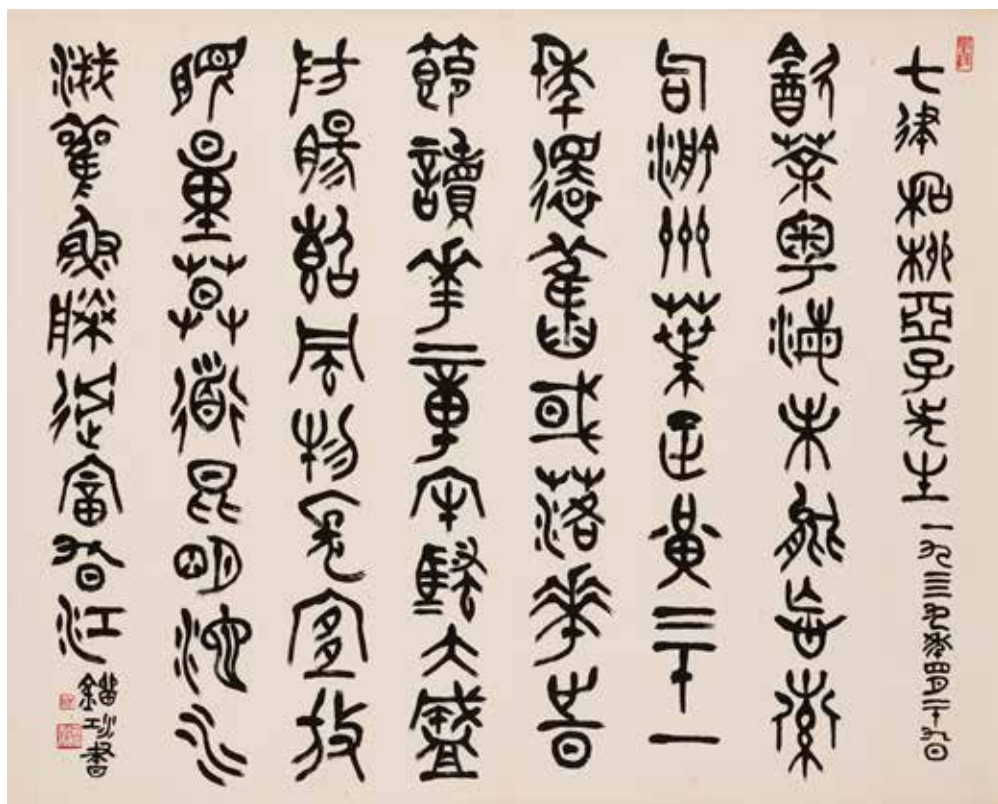 七律 和柳亞子先生 一九四九年四月二十九日
飲茶粵海未能忘索
句渝州葉正黃三十一
年還舊國落花時
節讀華章牢騷太盛
防腸斷風物長宜放
眼量莫道昆明池水
淺觀魚勝過富春江
書